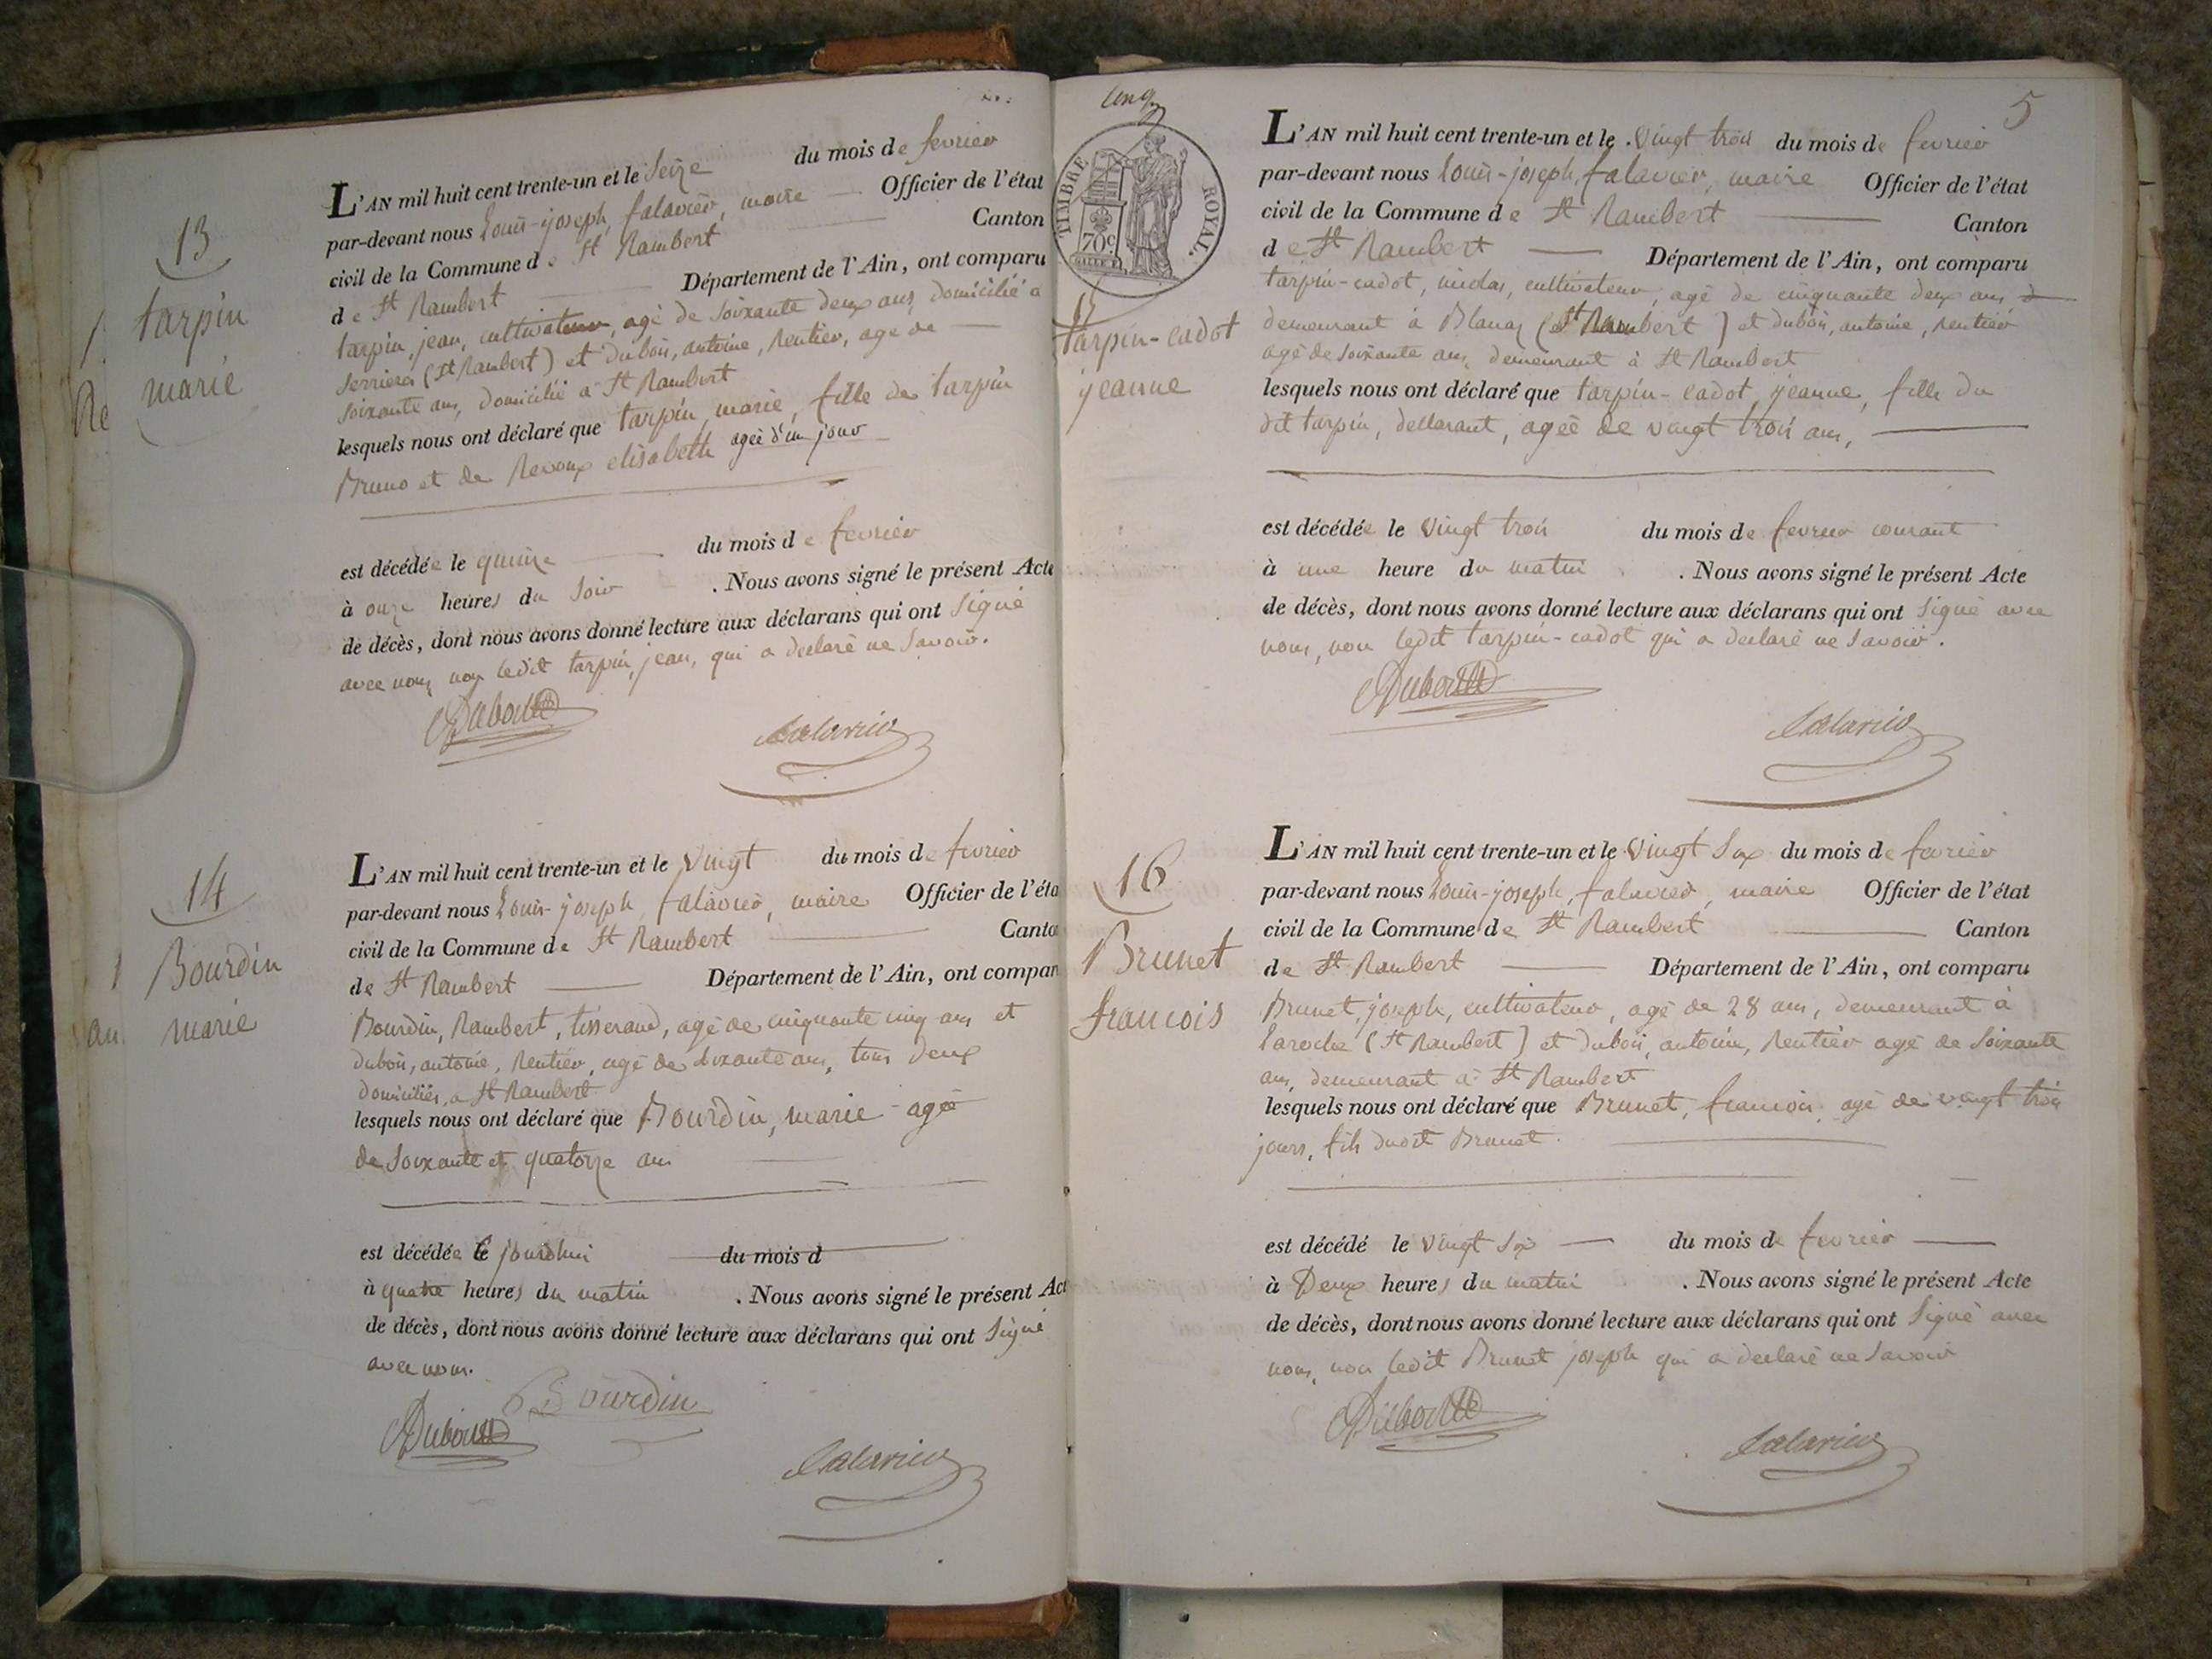 13
tarpin
marie
L'AN mil huit cent trente-un et le Seize du mois de fevrier
par-devant nous Louis-joseph falavier, maire Officier de l'état
civil de la Commune de St Rambert Canton
de St Rambert Département de l'Ain, ont comparu
tarpin, jean, cultivateur, agé de soixante deux ans, domicilié a
Serrieres (St Rambert) et dubois, antoine, Rentier, age de
soixante ans, domicilié a St Rambert
lesquels nous ont déclaré que tarpin, marie, fille de tarpin
Bruno et de Revoux elisabeth agee d'un jour
est décédée le quinze du mois de fevrier
à onze heures du soir . Nous avons signé le présent Acte
de décès, dont nous avons donné lecture aux déclarans qui ont signé
avec nous, non ledit tarpin, jean, qui a declaré ne savoir.
Dubois
falavier
14
Bourdin
marie
L'AN mil huit cent trente-un et le vingt du mois de fevrier
par-devant nous Louis-joseph falavier, maire Officier de l'éta
civil de la Commune de St Rambert Canto
de St Rambert Département de l'Ain, ont compar
Bourdin, Rambert, tisserand, agé de cinquante cinq ans et
dubois, antoine, Rentier, agé de soixante ans, tous deux
domiciliés a St Rambert
lesquels nous ont déclaré que Bourdin, marie agée
de soixante et quatorze ans
est décédée le jourdhui du mois d
à quatre heures du matin . Nous avons signé le présent Act
de décès, dont nous avons donné lecture aux déclarans qui ont signé
avec nous.
Bourdin
Dubois
falavier
cinq
5
TIMBRE ROYAL
70c
15
tarpin-cadot
jeanne
L'AN mil huit cent trente-un et le vingt trois du mois de fevrier
par-devant nous Louis-joseph, falavier, maire Officier de l'état
civil de la Commune de St Rambert Canton
de St Rambert Département de l'Ain, ont comparu
tarpin-cadot, nicolas, cultivateur, agé de cinquante deux ans
demeurant à Blanaz (St Rambert) et dubois, antoine, rentier
agé de soixante ans, demeurant à St Rambert
lesquels nous ont déclaré que tarpin-cadot, jeanne, fille du
dit tarpin, declarant, agée de vingt trois ans,
est décédée le vingt trois du mois de fevrier courant
à une heure du matin . Nous avons signé le présent Acte
de décès, dont nous avons donné lecture aux déclarans qui ont signé avec
nous, non ledit tarpin-cadot qui a declaré ne savoir.
Dubois
falavier
16
Brunet
francois
L'AN mil huit cent trente-un et le vingt six du mois de fevrier
par-devant nous Louis-joseph, falavier, maire Officier de l'état
civil de la Commune de St Rambert Canton
de St Rambert Département de l'Ain, ont comparu
Brunet, joseph, cultivateur, agé de 28 ans, demeurant à
Laroche (St Rambert) et dubois, antoine, Rentier agé de soixante
ans, demeurant à St Rambert
lesquels nous ont déclaré que Brunet, francois, agé de vingt trois
jours, fils dudit Brunet
est décédé le vingt six du mois de fevrier
à Deux heures du matin . Nous avons signé le présent Acte
de décès, dont nous avons donné lecture aux déclarans qui ont signé avec
nous, non ledit Brunet joseph qui a declaré ne savoir
Dubois
falavier